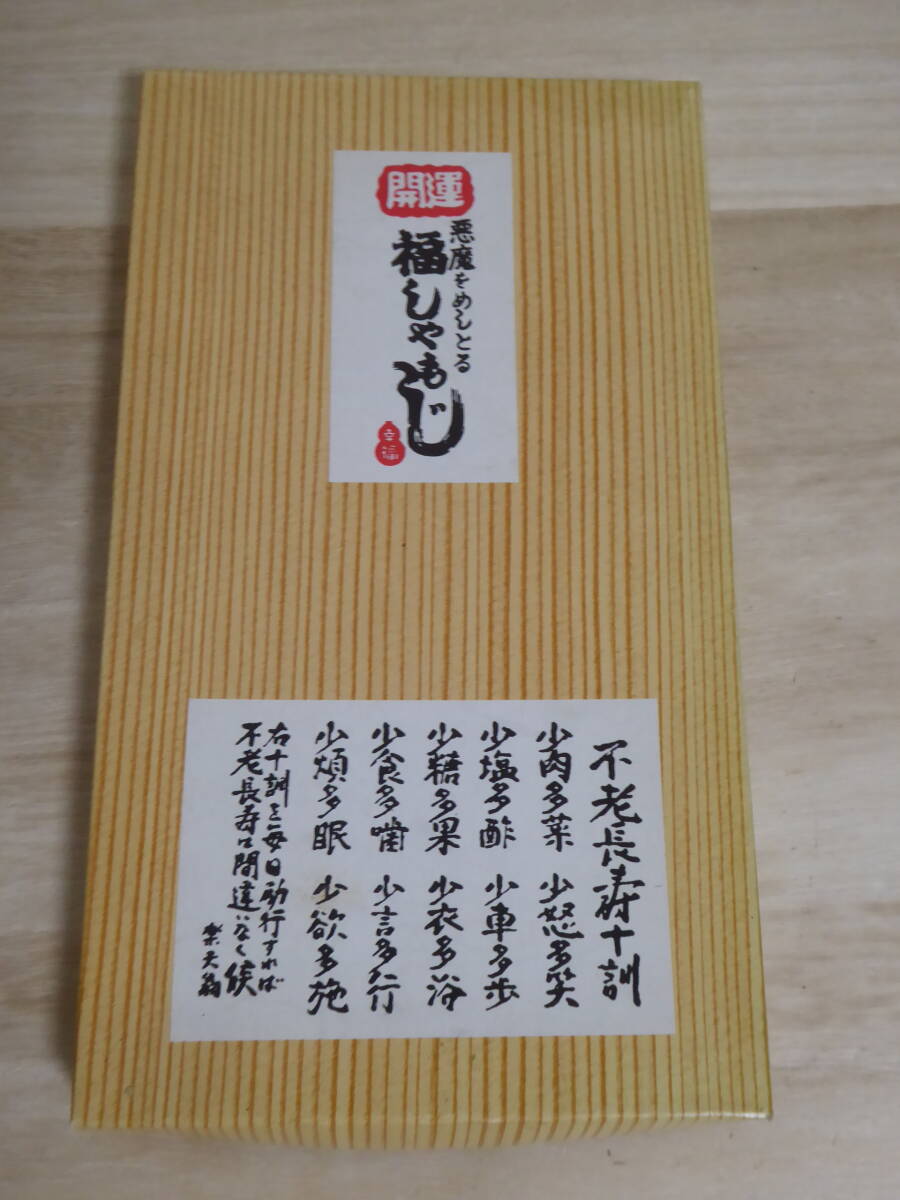 開運
悪魔をめしとる
福しゃもじ
幸福
不老長寿十訓
少肉多菜 少怒多笑
少塩多酢 少車多歩
少糖多果 少衣多浴
少食多噛 少言多行
少煩多眠 少欲多施
右十訓を毎日励行すれば
不老長寿に間違いなく候
楽天翁